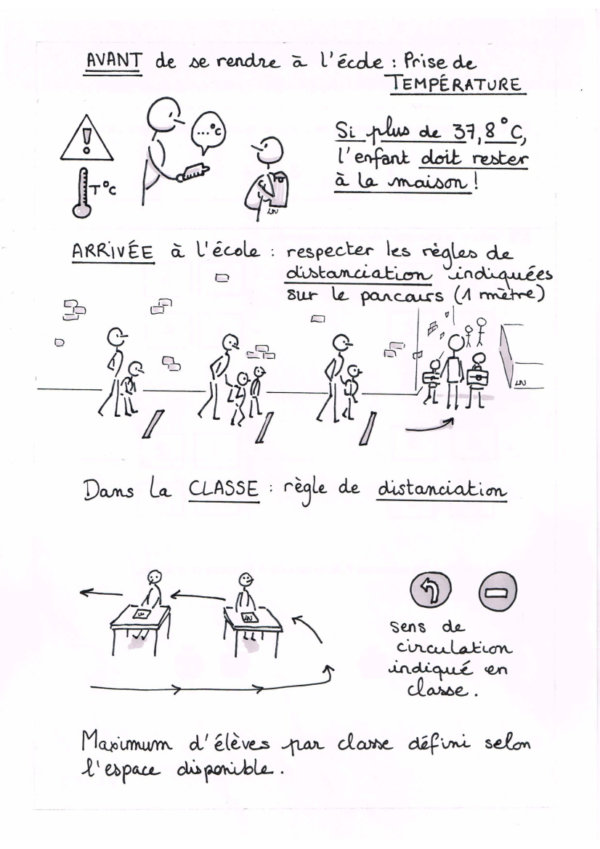 AVANT de se rendre à l'école : Prise de
TEMPÉRATURE
...°C
T°C
Si plus de 37,8°C,
l'enfant doit rester
à la maison !
ARRIVÉE à l'école : respecter les règles de
distanciation indiquées
sur le parcours (1 mètre)
Dans la CLASSE : règle de distanciation
sens de
circulation
indiqué en
classe.
Maximum d'élèves par classe défini selon
l'espace disponible.